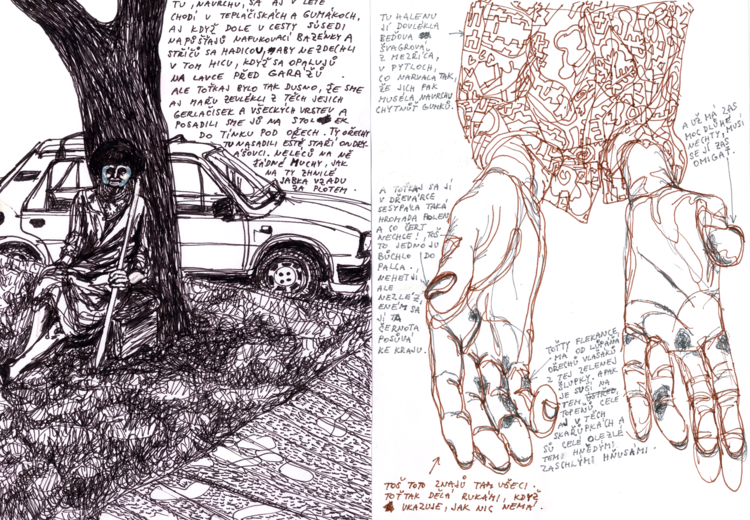 TU, NAVRCHU, SA AJ V LETĚ
CHODÍ V TEPLÁČISKÁCH A GUMÁKOCH,
AJ KDYŽ DOLE U CESTY SÚSEDI
NAPÚŠŤAJÚ NAFUKOVACÍ BAZÉNKY A
STŘÍČÚ SA HADICOU, ABY NEZDECHLI
V TOM HICU, KDYŽ SA OPALUJÚ
NA LAVCE PŘED GARÁŽÚ.
ALE TOŤKAJ BYLO TAK DUSNO, ŽE SME
AJ MAŘU ZEVLÉKLI Z TĚCH JEJICH
GERLAČISEK A VŠECKÝCH VRSTEV A
POSADILI SME JU NA STOLEK
DO TÍNKU POD OŘECH. TY OŘECHY
TU NASADILI EŠTĚ STAŘÍ ONDRY-
ÁŠOVCI. NELEČÚ NA NĚ
ŽÁDNÉ MUCHY, JAK
NA TY ZHNILÉ
JABKA VZADU
ZA PLOTEM.
TU HALENU
JÍ DOVLÉKLA
BEĎOVA
ŠVAGROVÁ
Z MEZŘÍČA,
V PYTLOCH,
CO NARVALA TAK,
ŽE JICH PAK
MUSELA NAVRCHU
CHYTNÚŤ GUMKÚ.
A UŽ MÁ ZAS
MOC DLÚHÉ
NECHTY, MUSÍ
SE JÍ ZAS
OMIGAŤ.
A TOŤKAJ SA JÍ
V DŘEVÁRCE
SESYPALA TAKÁ
HROMADA POLEN
A CO ČERT
NECHCE! TOŠ
TO JEDNO JU
BÚCHLO DO
PALCA.
NEHET JÍ
ALE
NEZLÉZ,
ENEM SA
JÍ TA
ČERNOTA
POSÚVÁ
KE KRAJU.
TOŤTY FLEKANCE
MÁ OD LÚPANÍ
OŘECHŮ VLAŠÁKŮ
Z TEJ ZELENEJ
ŠLUPKY. A PAK
JE SUŠÍ NA
TEM ÚSTŘED.
TOPENÚ CELÉ
AJ V TĚCH
SKAŘUPKÁCH A
SÚ CELÉ OLEZLÉ
TEMI HNĚDÝMI
ZASCHLÝMI HŇUSAMI.
TOŠ TOTO ZNAJÚ TAM VŠECI.
TOŤTAK DĚLÁ RUKAMI, KDYŽ
UKAZUJE, JAK NIC NEMÁ.